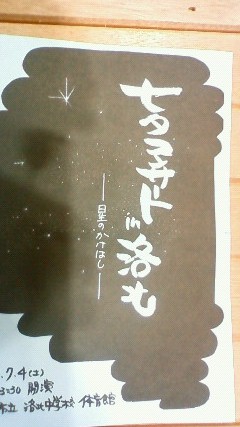 七夕コンサート
in 洛北
―星のかけはし―
.7.4(土)
3:30 開演
市立 洛北中学校 体育館